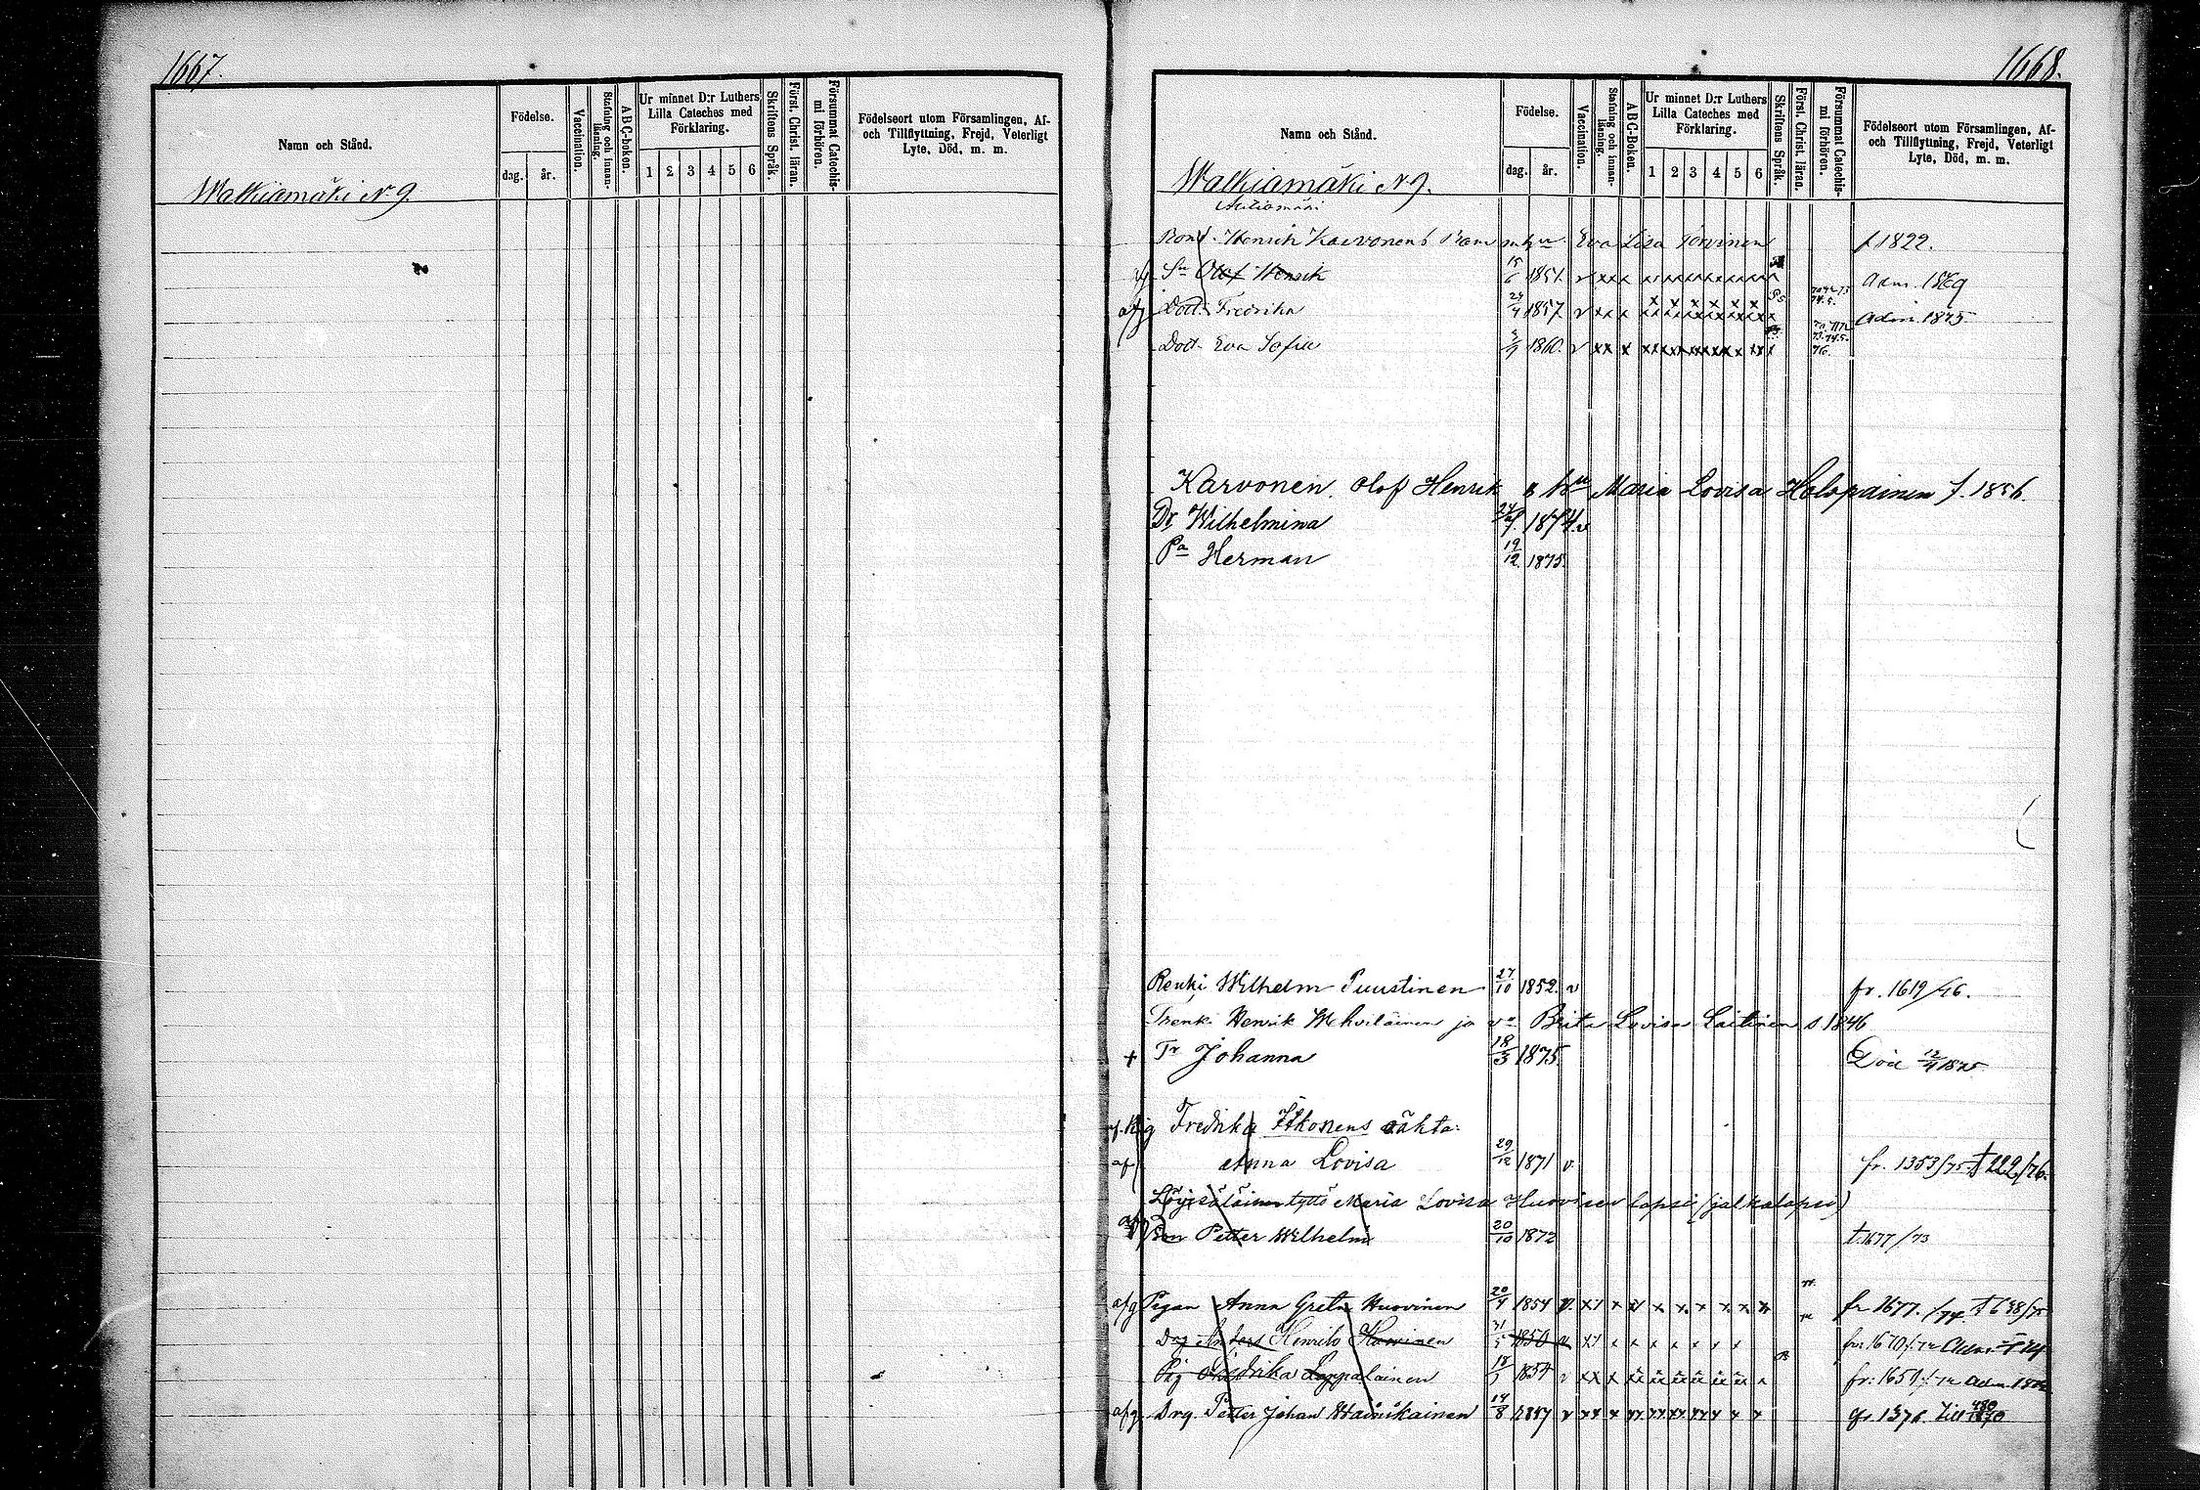 1667.
Namn och Stånd.
Födelse.
dag. år.
Vaccination.
Stafning och innanläsning.
A B C-boken.
Ur minnet D:r Luthers Lilla Cateches med Förklaring.
1 2 3 4 5 6
Skriftens Språk.
Först. Christ. läran.
Försummat Catechismi förhören.
Födelseort utom Församlingen, Af- och Tillflyttning, Frejd, Veterligt Lyte, Död, m. m.
Walkiamäki N 9.
1668.
Namn och Stånd.
Födelse.
dag. år.
Vaccination.
Stafning och innanläsning.
A B C-Boken.
Ur minnet D:r Luthers Lilla Cateches med Förklaring.
1 2 3 4 5 6
Skriftens Språk.
Först. Christ. läran.
Försummat Catechismi förhören.
Födelseort utom Församlingen, Af- och Tillflyttning, Frejd, Veterligt Lyte, Död, m. m.
Walkiamäki N 9.
Henrik Karvonens Eva Lisa Torvinen f 1822.
Sn Olof Henrik 15/6 1851. v Adm. 1869
Dott. Fredrika 1857 v Adm. 1875
Dott. Eva Sofia 1860. v
Karvonen. Olof Henrik & hu Maria Lovisa Holopainen f. 1856.
Dr Wilhelmina 1874. v
Pa Herman 19/12 1875.
Renki Wilhelm Puustinen 27/10 1852. v fr. 1619/76.
Trenk. Henrik Mehviläinen ja va Brita Lovisa Laitinen s. 1846
+ Tr Johanna 18/3 1875. Död 1875
Fredrika Itkonens oäkta:
af Anna Lovisa 29/12 1871 v. fr. 1353/75 t 222/76.
Löysäläinen tyttö Maria Lovisa Huovinen lapsi (jalkalapsi)
Petter Wilhelm 20/10 1872 t. 1677/73
afg Pigan Anna Greta Huovinen 20/4 1854 v. fr 1677./74 t 638/75
Drg Anders Henrik 31/5 1850
Pig Fredrika Lappalainen 18/ 1854 v
afg. Drg. Petter Johan 14/8 1847 v fr. 1376.